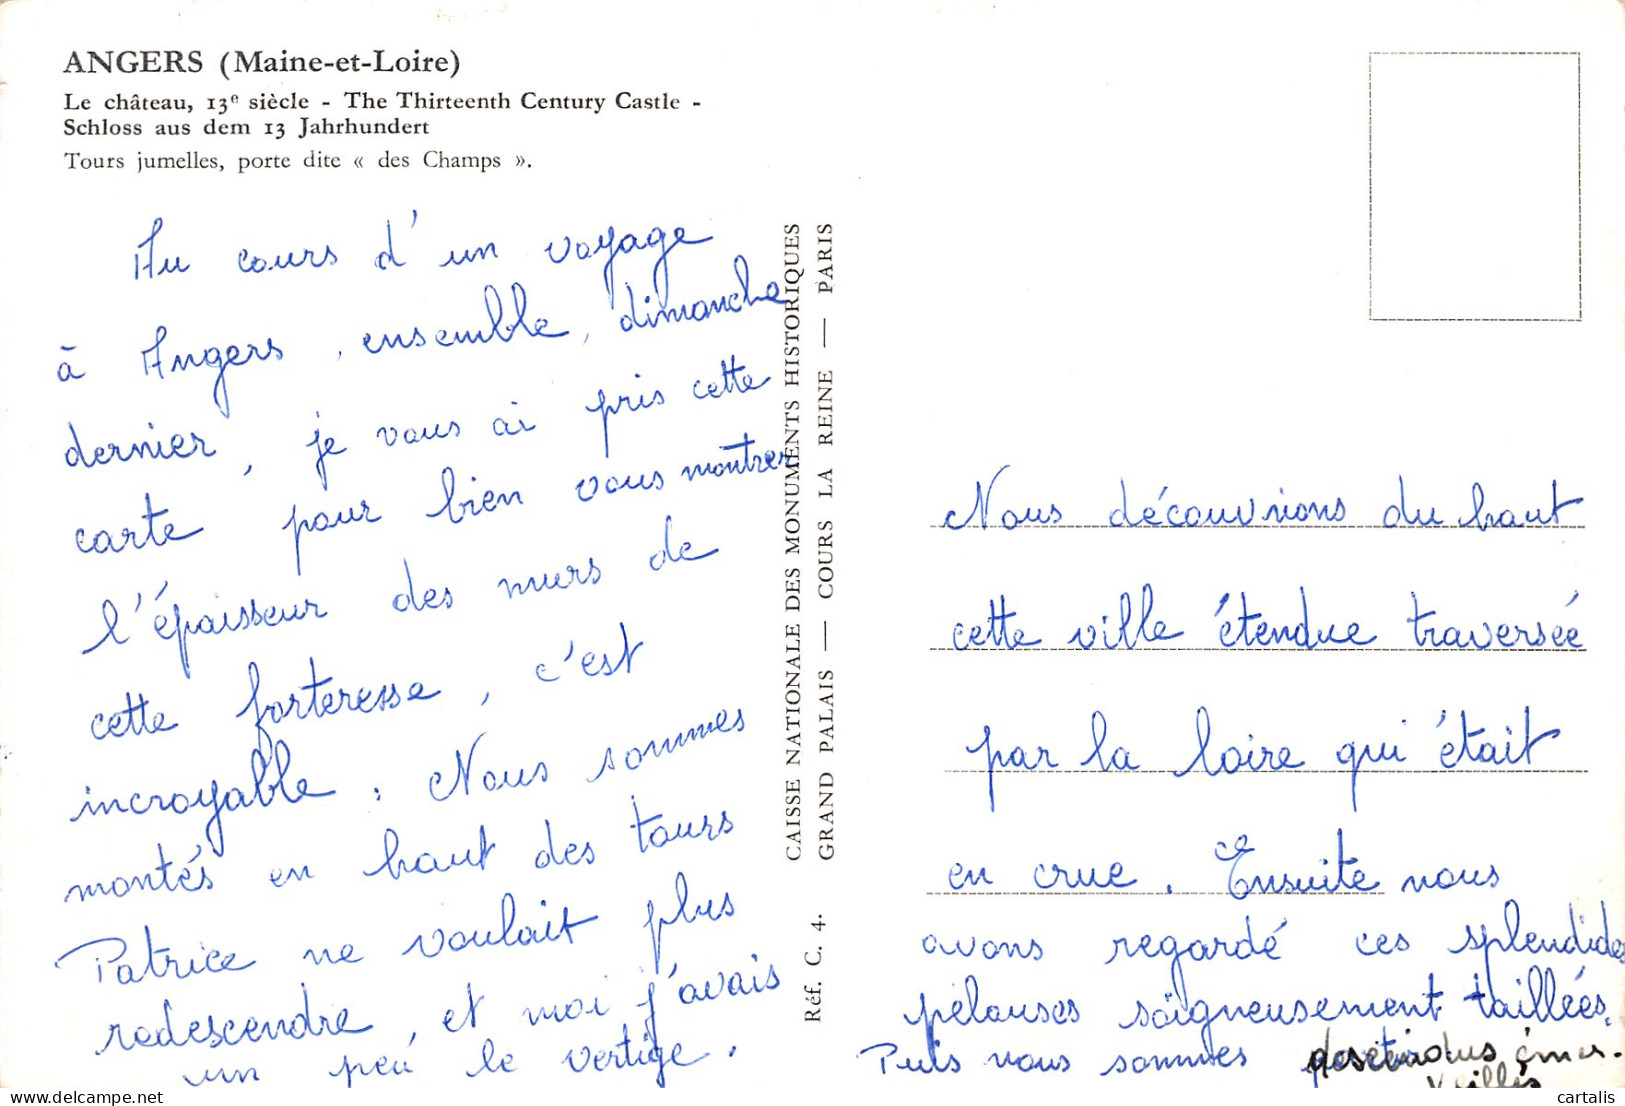 ANGERS (Maine-et-Loire)
Le château, 13e siècle - The Thirteenth Century Castle -
Schloss aus dem 13 Jahrhundert
Tours jumelles, porte dite « des Champs ».
Au cours d'un voyage
à Angers, ensemble, dimanche
dernier, je vous ai pris cette
carte pour bien vous montrer
l'épaisseur des murs de
cette forteresse, c'est
incroyable. Nous sommes
montés en haut des tours
Patrice ne voulait plus
redescendre, et moi j'avais
un peu le vertige.
CAISSE NATIONALE DES MONUMENTS HISTORIQUES
GRAND PALAIS — COURS LA REINE — PARIS
Réf. C. 4.
Nous découvrions du haut
cette ville étendue traversée
par la loire qui était
en crue. Ensuite nous
avons regardé ces splendides
pelouses soigneusement taillées.
Puis nous sommes descendus émer-
veillés
cartalis